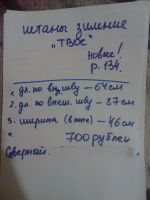 штаны зимние
"ТВОЕ"
новые!
р. 134.
1. дл. по вн. шву – 64 см
2. дл. по внеш. шву – 87 см
3. ширина (в поясе) – 46 см
4.
700 рублей
Северный.